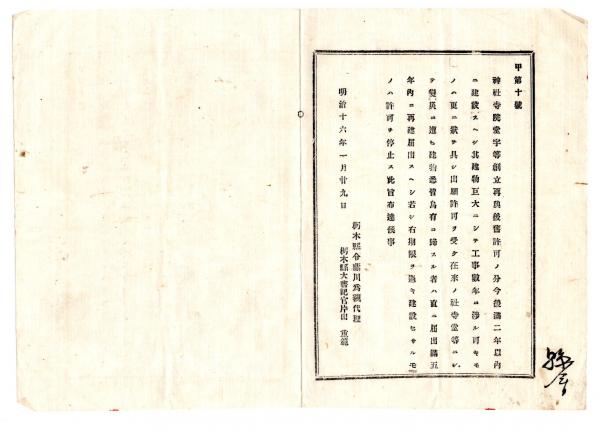 甲第十號
神社寺院堂宇等創立再興復舊許可ノ分今後滿二年以內
ニ建設スヘシ其建物巨大ニシテ工事數年ニ涉ル可キモ
ノハ更ニ狀ヲ具シ出願許可ヲ受ク在來ノ社寺堂等ニシ
テ變災ニ遭ヒ建物悉皆烏有ニ歸スル者ハ直ニ届出滿五
年內ニ再建届出スヘシ若シ右期限ヲ過キ建設セサルモ
ノハ許可ヲ停止ス此旨布達候事
明治十六年一月廿九日
栃木縣令藤川爲親代理
栃木縣大書記官片山重範